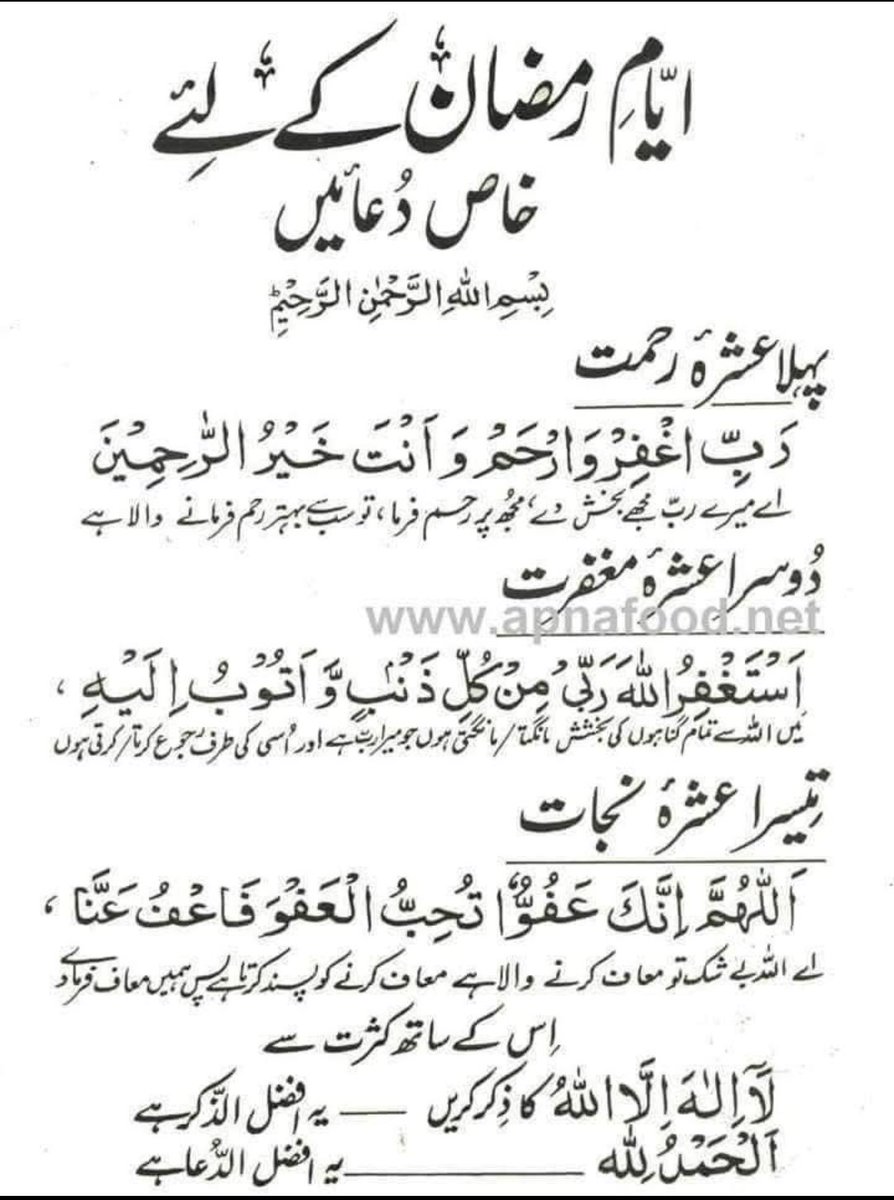 ایّامِ رمضان کے لئے
خاص دُعائیں
بِسْمِ اللهِ الرَّحْمٰنِ الرَّحِيْمِ
پہلا عشرۂ رحمت
رَبِّ اغْفِرْ وَارْحَمْ وَاَنْتَ خَيْرُ الرّٰحِمِيْنَ
اے میرے ربّ مجھے بخش دے، مجھ پر رحم فرما، تو سب سے بہتر رحم فرمانے والا ہے
دُوسرا عشرۂ مغفرت
www.apnafood.net
اَسْتَغْفِرُ اللهَ رَبِّیْ مِنْ كُلِّ ذَنْبٍ وَّاَتُوْبُ اِلَيْهِ ،
میں اللہ سے تمام گناہوں کی بخشش مانگتا/مانگتی ہوں جو میرا ربّ ہے اور اُسی کی طرف رجوع کرتا/کرتی ہوں
تیسرا عشرۂ نجات
اَللّٰهُمَّ اِنَّكَ عَفُوٌّ تُحِبُّ الْعَفْوَ فَاعْفُ عَنَّا ،
اے اللہ بے شک تو معاف کرنے والا ہے معاف کرنے کو پسند کرتا ہے پس ہمیں معاف فرما دے
اِس کے ساتھ کثرت سے
لَآ اِلٰهَ اِلَّا اللهُ کا ذِکر کریں — یہ افضل الذّکر ہے
اَلْحَمْدُ لِلّٰه ــــــ یہ افضل الدُّعا ہے